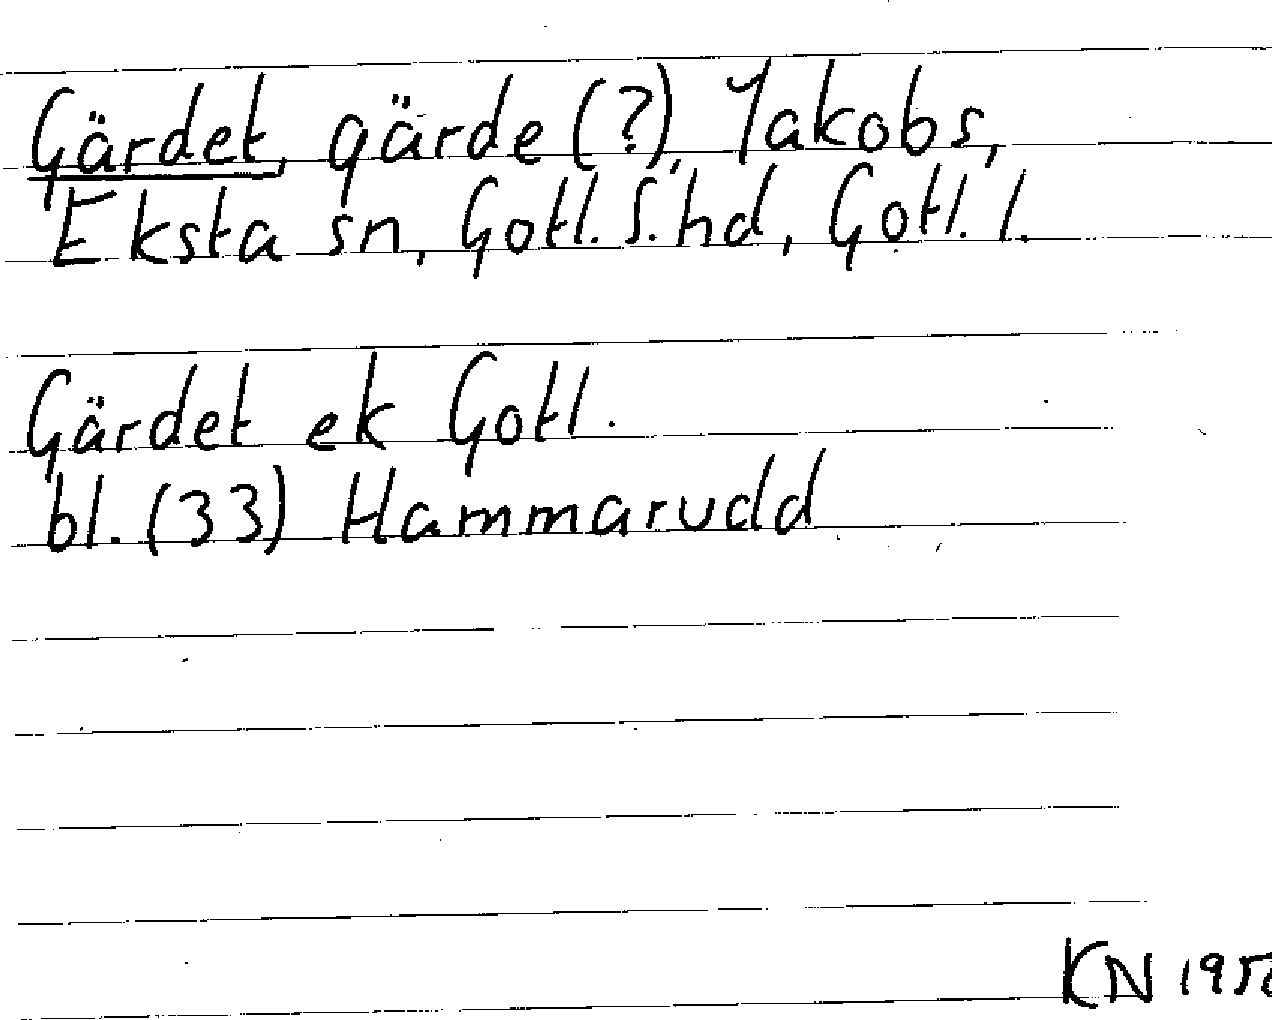 Gärdet, gärde (?), Jakobs,
Eksta sn, Gotl. S. hd, Gotl. l.
Gärdet ek Gotl.
bl. (33) Hammarudd
KN